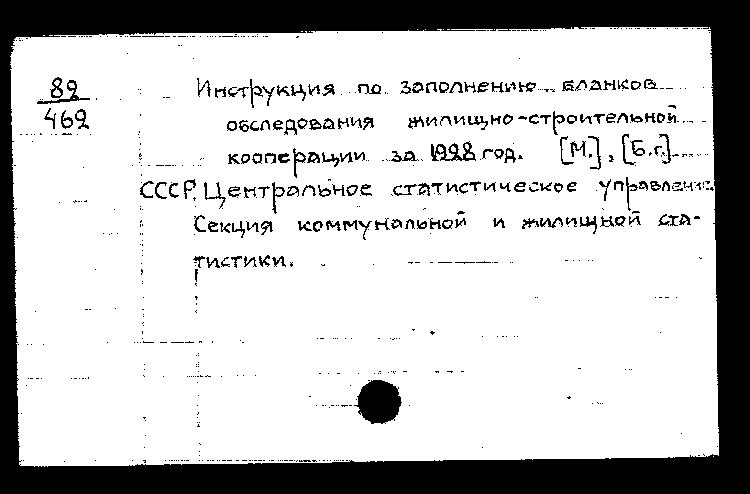 82
462
Инструкция по заполнению бланков
обследования жилищно-строительной
кооперации за 1928 год. [М.], [Б.г.]
СССР. Центральное статистическое управление.
Секция коммунальной и жилищной ста-
тистики.